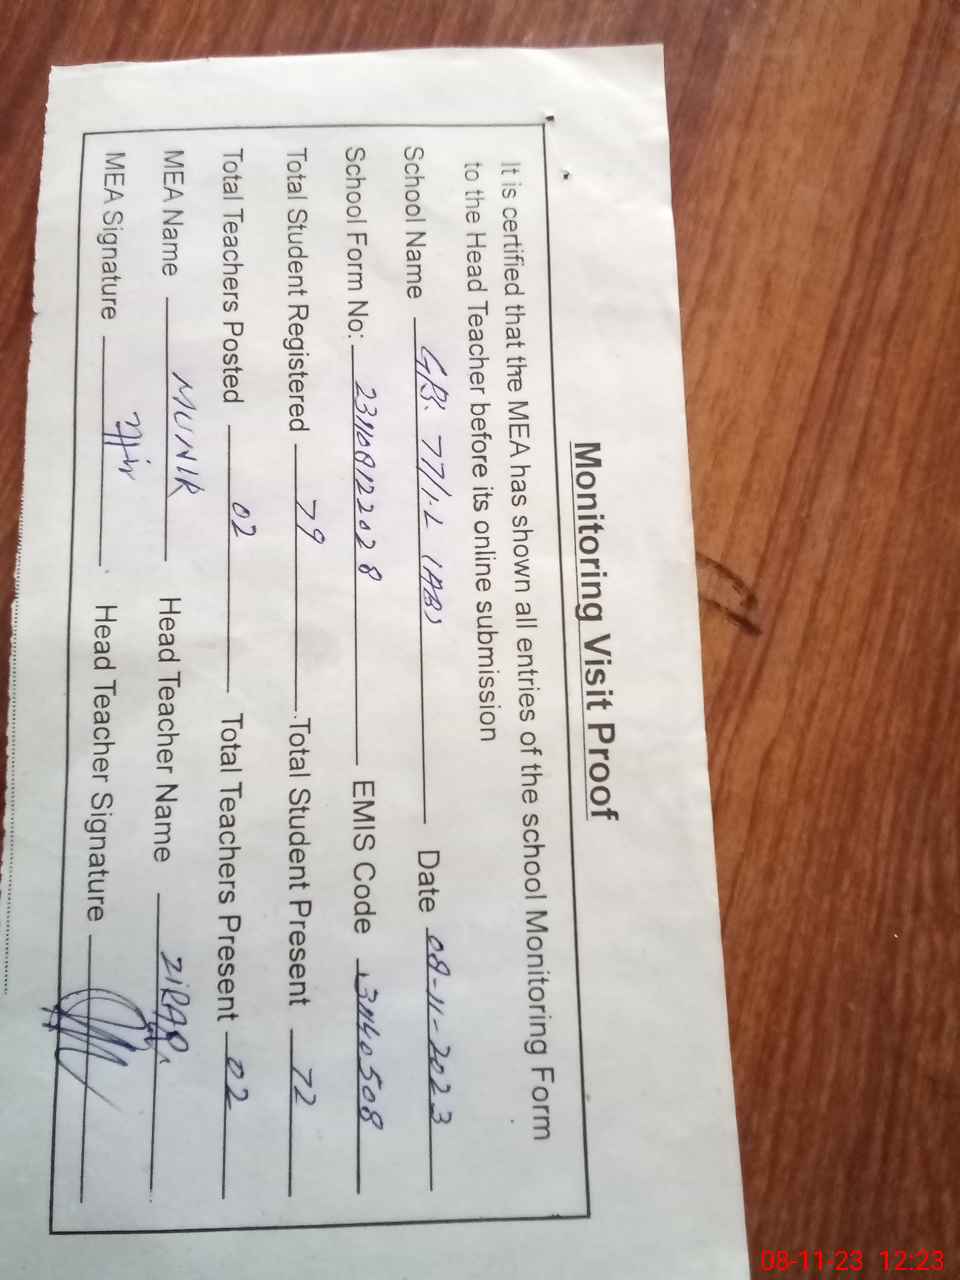 Monitoring Visit Proof
It is certified that the MEA has shown all entries of the school Monitoring Form
to the Head Teacher before its online submission
School Name GB. 77/1-L (AB) Date 08-11-2023
School Form No: 23110812028 EMIS Code 31140508
Total Student Registered 79 Total Student Present 72
Total Teachers Posted 02 Total Teachers Present 02
MEA Name MUNIR Head Teacher Name
MEA Signature Head Teacher Signature
08-11-23 12:23